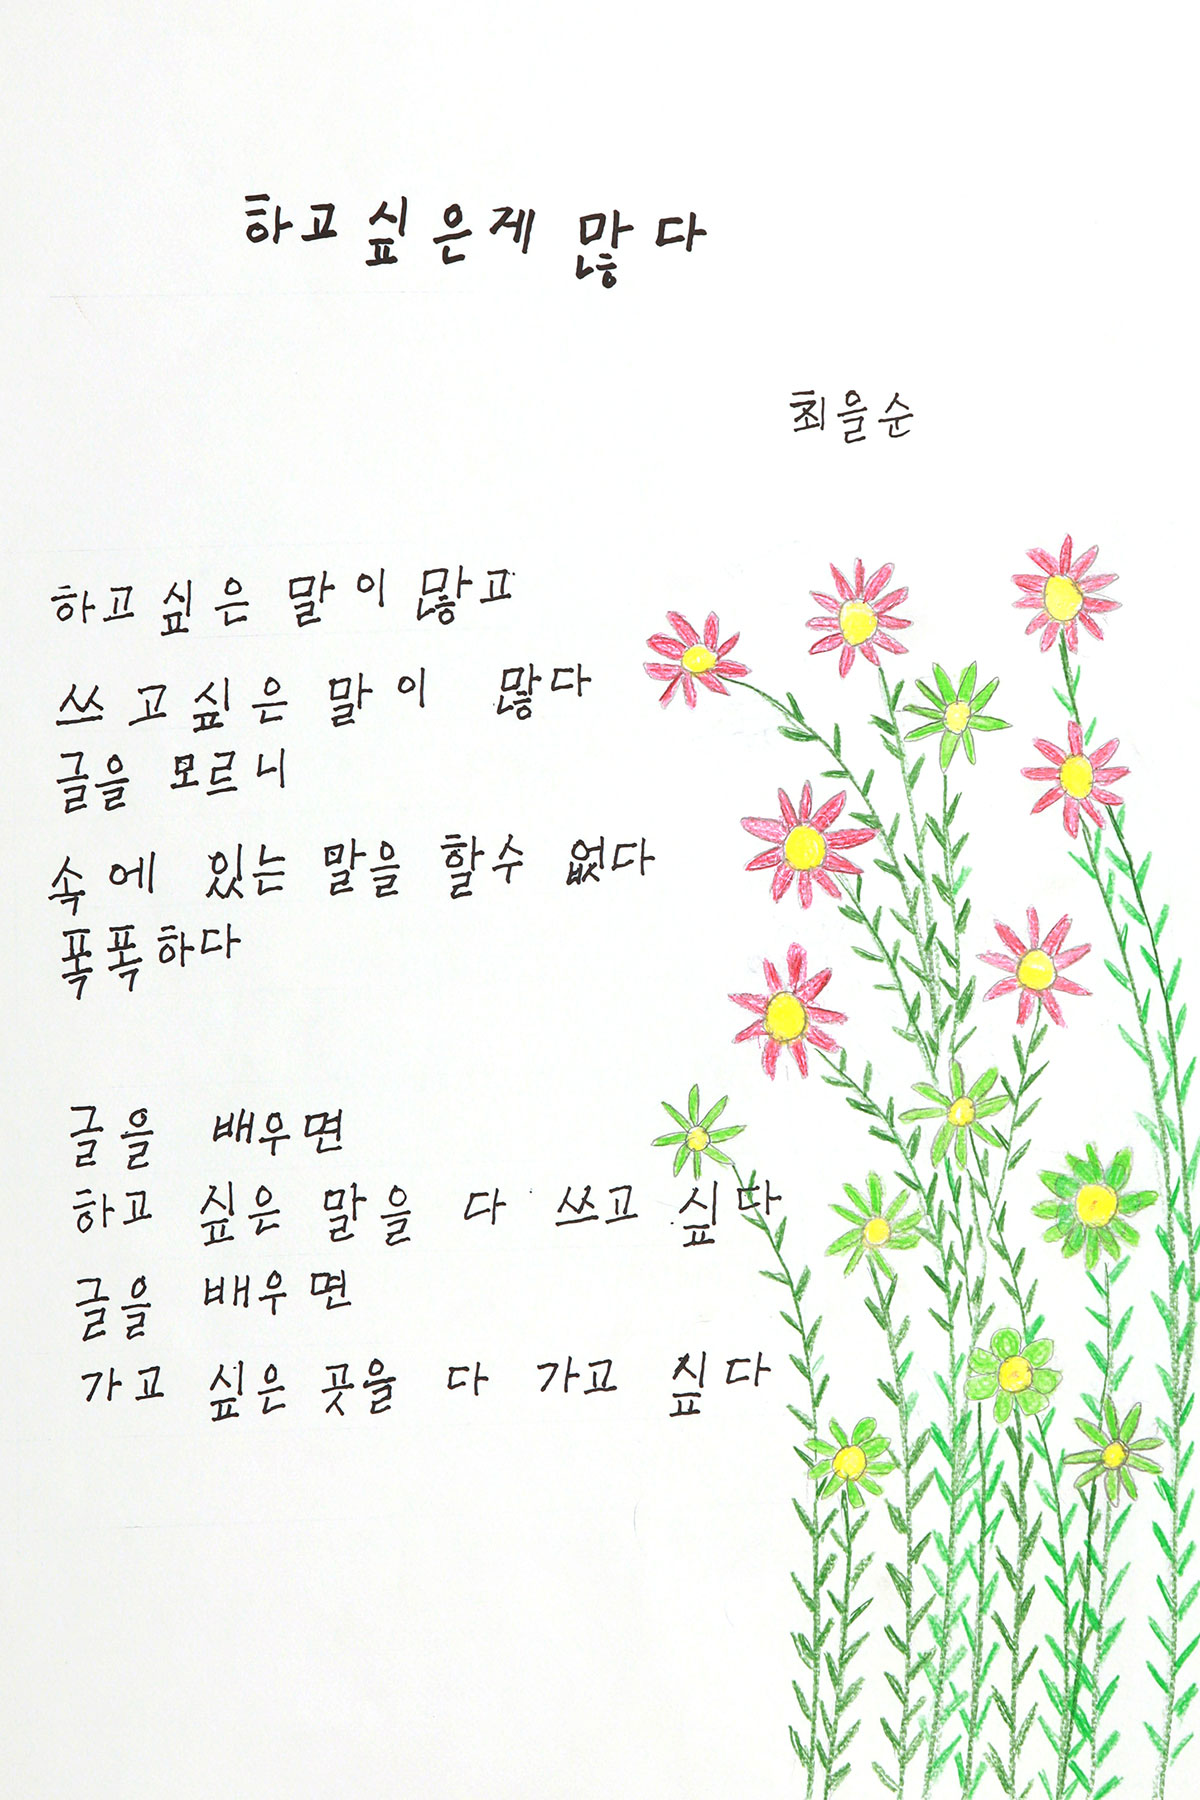 하고싶은게 많다
최을순
하고싶은 말이 많고
쓰고싶은 말이 많다
글을 모르니
속에 있는 말을 할수 없다
폭폭하다
글을 배우면
하고 싶은 말을 다 쓰고 싶다
글을 배우면
가고 싶은 곳을 다 가고 싶다